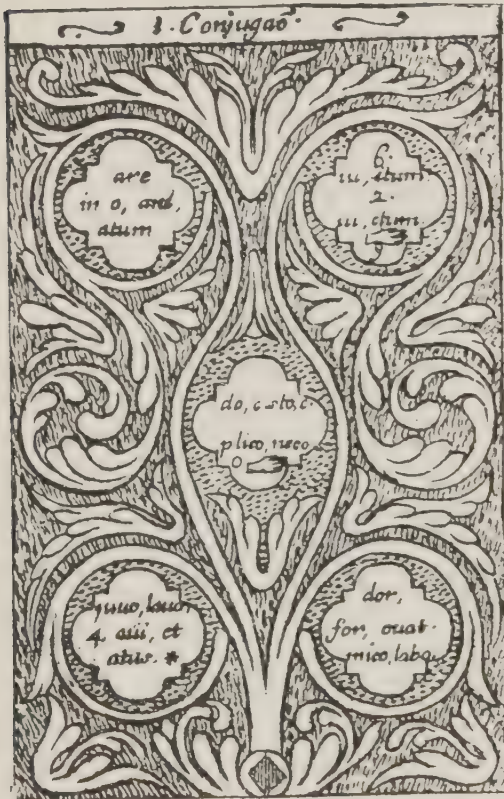 1. Conjugaõ.
are
in o, aui,
atum
6.
ui, itum
2.
ui, ctum
do, & sto, &
plico, neco
o
iuuo, lauo
4 aui, et
atus. *
dor,
for, ouat.
mico, labo.